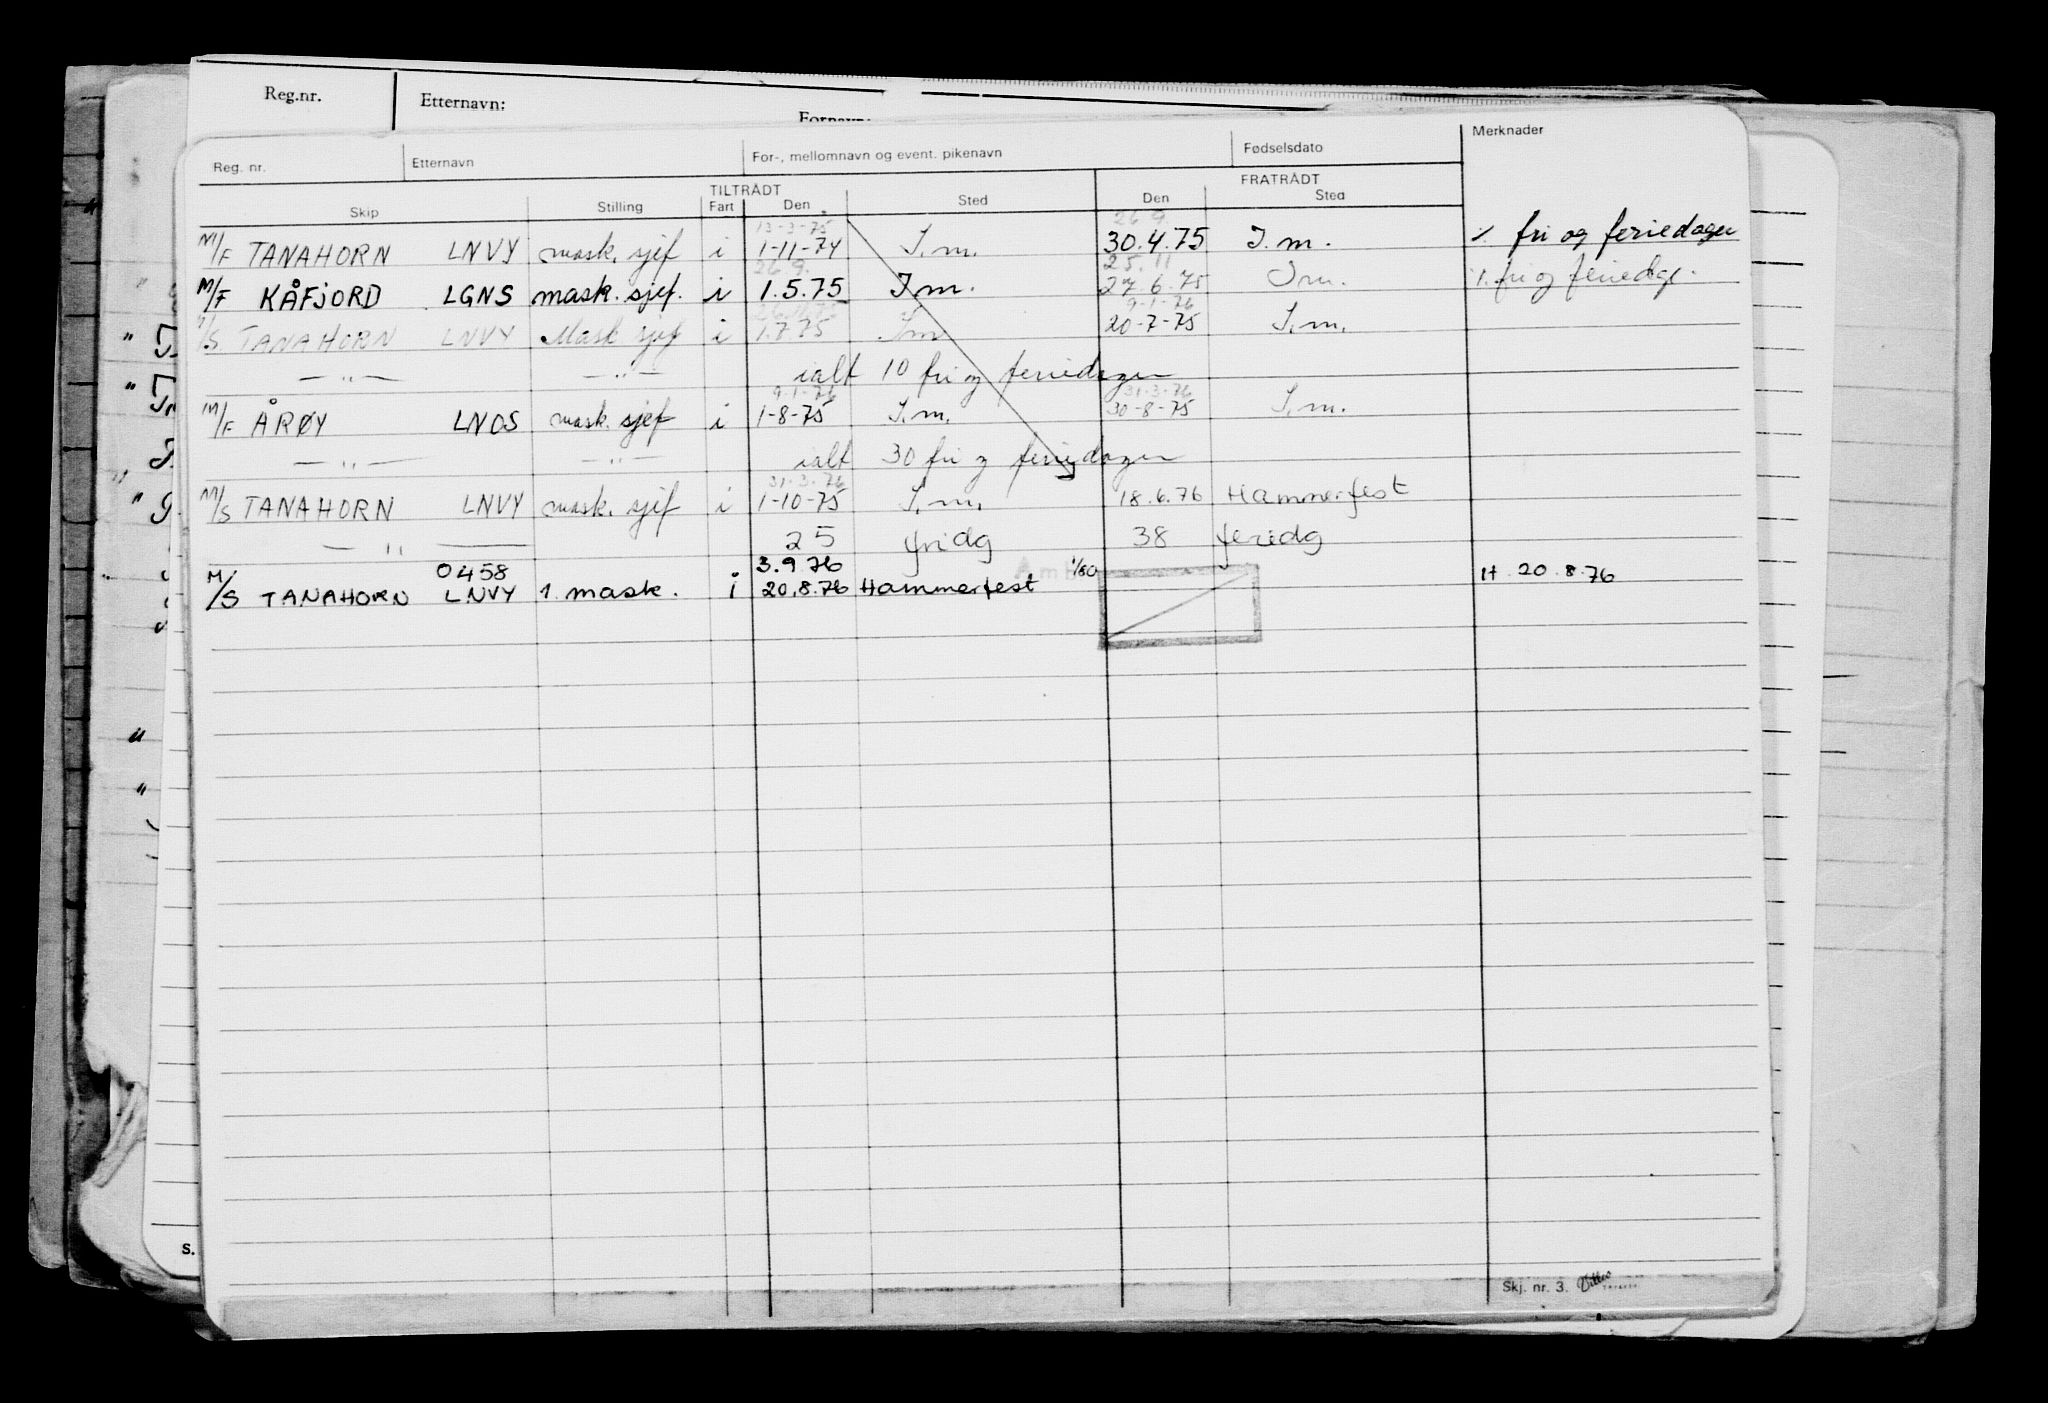 Reg.nr. Etternavn:
Reg. nr. Etternavn For-, mellomnavn og event. pikenavn Fødselsdato Merknader
TILTRÅDT FRATRÅDT
Skip Stilling Fart Den Sted Den Sted
13-3-75 26 9.
M/F TANAHORN LNVY mask. sjef i 1-11-74 I.m. 30.4.75 I.m. % fri og feriedager
26 9. 25.11
M/F KÅFJORD LGNS mask. sjef. i 1.5.75 I m. 27.6.75 I m. % fri og feriedgr.
9-1-76
M/S TANAHORN LNVY Mask sjef i 1.7.75 I m 20-7-75 I.m.
— " — — " — ialt 10 fri og feriedager
9-1-76 31-3-76
M/F ÅRØY LNOS mask. sjef i 1-8-75 I.m. 30-8-75 I.m.
— " — — " — ialt 30 fri og feriedager
31-3-76
M/S TANAHORN LNVY mask. sjef i 1-10-75 I.m. 18.6.76 Hammerfest
— " — 25 fridg 38 feriedg
0458 3.9.76 1/80
M/S TANAHORN LNVY 1. mask. i 20.8.76 Hammerfest H 20.8.76
S.
Skj. nr. 3.